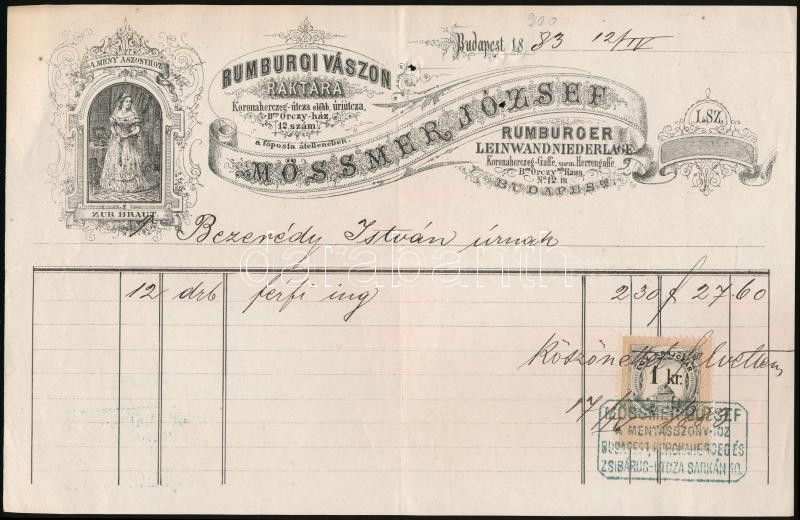 300
Budapest 1883 12/IV
A MENY ASZONYHOZ
ZUR BRAUT.
RUMBURGI VÁSZON
RAKTÁRA
Koronaherczeg-útcza előbb, úriútcza,
Bró Orczy-ház,
12. szám.
a főposta átellenében.
MÖSSMER JÓZSEF
RUMBURGER
LEINWANDNIEDERLAGE
Koronaherczeg-Gasse, vorm. Herrengasse
Bon Orczy Haus,
No 12.
BUDAPEST
I. SZ.
Bezerédy István úrnak
12 drb férfi ing 2 30 f 27.60
darabanth
Köszönettel felvettem
1 kr.
17/
MÖSSMER JÓZSEF
A MENYASSZONYHOZ
BUDAPEST, KORONAHERCEG ÉS
ZSIBÁRUS-UTCZA SARKÁN 10.